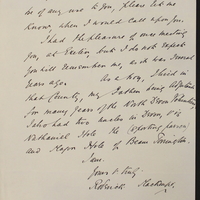 be of any use to you, please let me
know, when I would call upon you.
I had the pleasure of once meeting
you, at Exeter, but I do not expect
you will remember me, as it was several
years ago. As a boy, I lived in
that County, my Father being Adjutant
for many years of the North Devon
I also had two uncles in Devon, viz
Nathaniel Hole the sporting parson,
and Major Hole of Beam Torrington.
I am.
Yours v. truly
Roderick